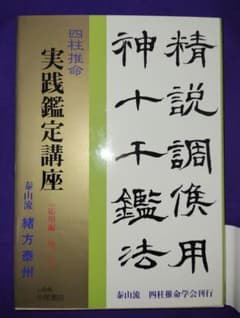 精説調候用
神十干鑑法
四柱推命
実践鑑定講座
泰山流 緒方泰州
泰山流 四柱推命学会刊行